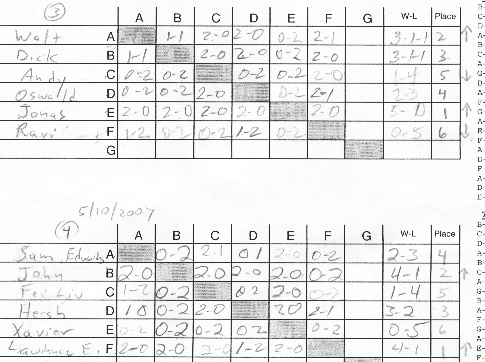 3
A B C D E F G W-L Place
Walt A 1-1 2-0 2-0 0-2 2-1 3-1-1 2
Dick B 1-1 2-0 2-0 0-2 2-0 3-1-1 3
Andy C 0-2 0-2 0-2 0-2 2-0 1-4 5
Oswald D 0-2 0-2 2-0 0-2 2-1 2-3 4
Jonas E 2-0 2-0 2-0 2-0 2-0 1
Ravi F 1-2 0-2 0-2 1-2 0-2 0-5 6
G
4 5/10/2007
A B C D E F G W-L Place
Sam A 0-2 2-1 0 1 2-0 0-2 2-3 4
John B 2-0 2-0 2-0 2-0 0-2 4-1 2
Fei Liu C 1-2 0-2 0 2 2-0 1-4 5
Hersh D 1 0 0-2 2-0 2 0 2-1 3-2 3
Xavier E 0-2 0-2 0-2 0 2 0-2 0-5 6
Lawrence E. F 2-0 2-0 1-2 2-0 4-1 1